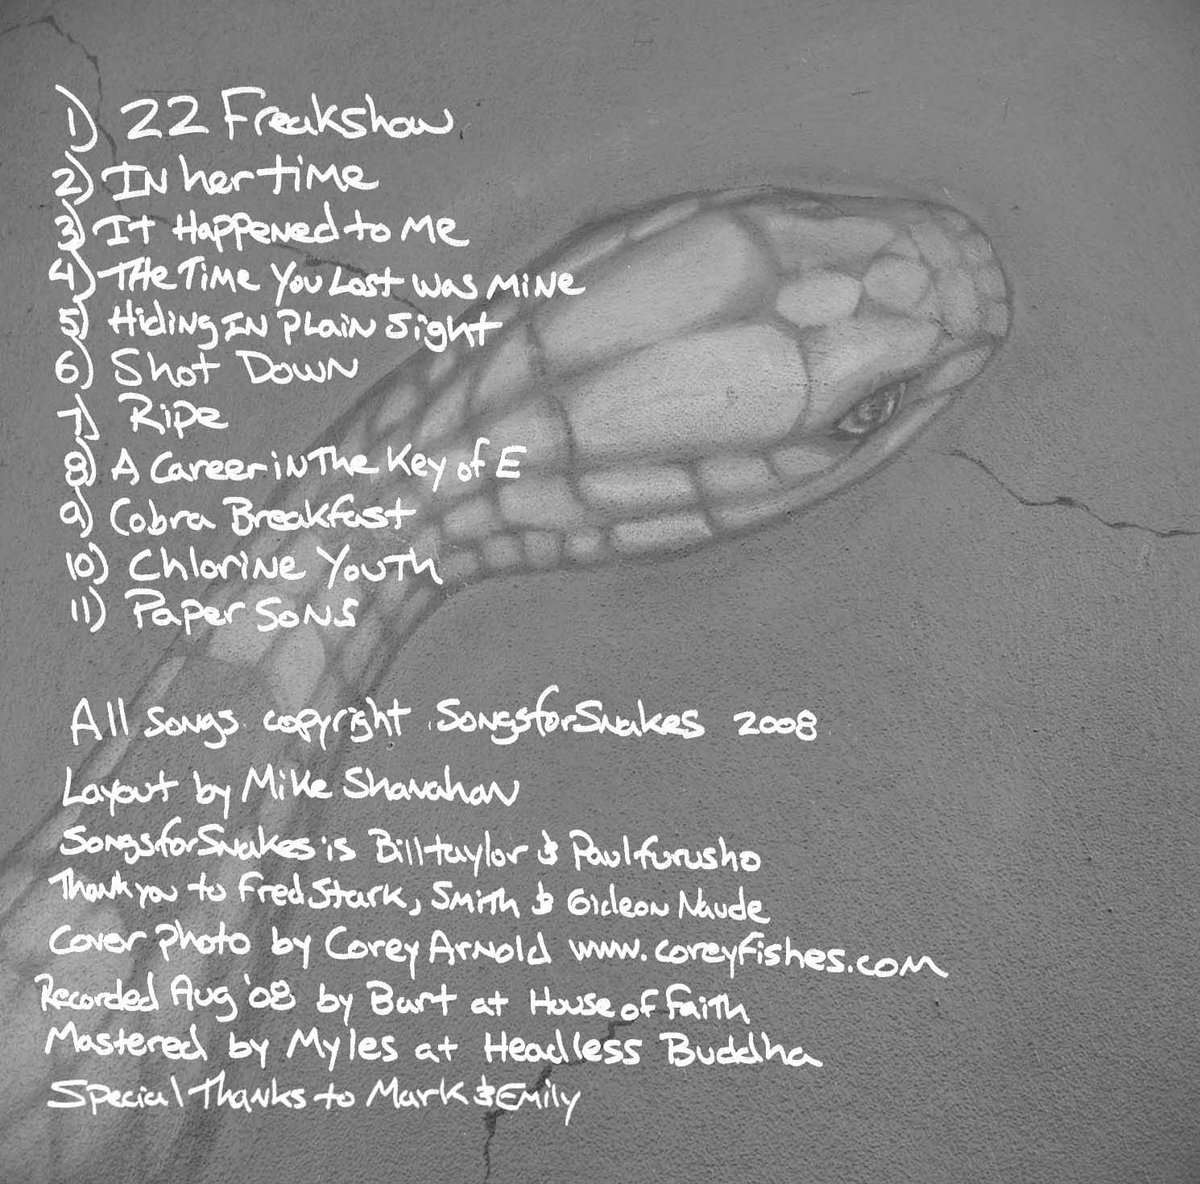 1) 22 Freakshow
2) In her time
3) It Happened to Me
4) The Time You Lost was Mine
5) Hiding in Plain Sight
6) Shot Down
7) Ripe
8) A Career in The Key of E
9) Cobra Breakfast
10) Chlorine Youth
11) Paper Sons
All Songs copyright SongsforSnakes 2008
Layout by Mike Shanahan
SongsforSnakes is Bill taylor & Paul furusho
Thank you to Fred Stark, Smith & Gideon Naude
Cover Photo by Corey Arnold www.coreyfishes.com
Recorded Aug '08 by Bart at House of Faith
Mastered by Myles at Headless Buddha
Special Thanks to Mark & Emily